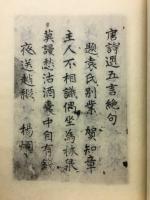 唐詩選五言絶句
題袁氏別業　賀知章
主人不相識偶坐為林泉
莫謾愁沽酒囊中自有錢
夜送趙縱　楊烱